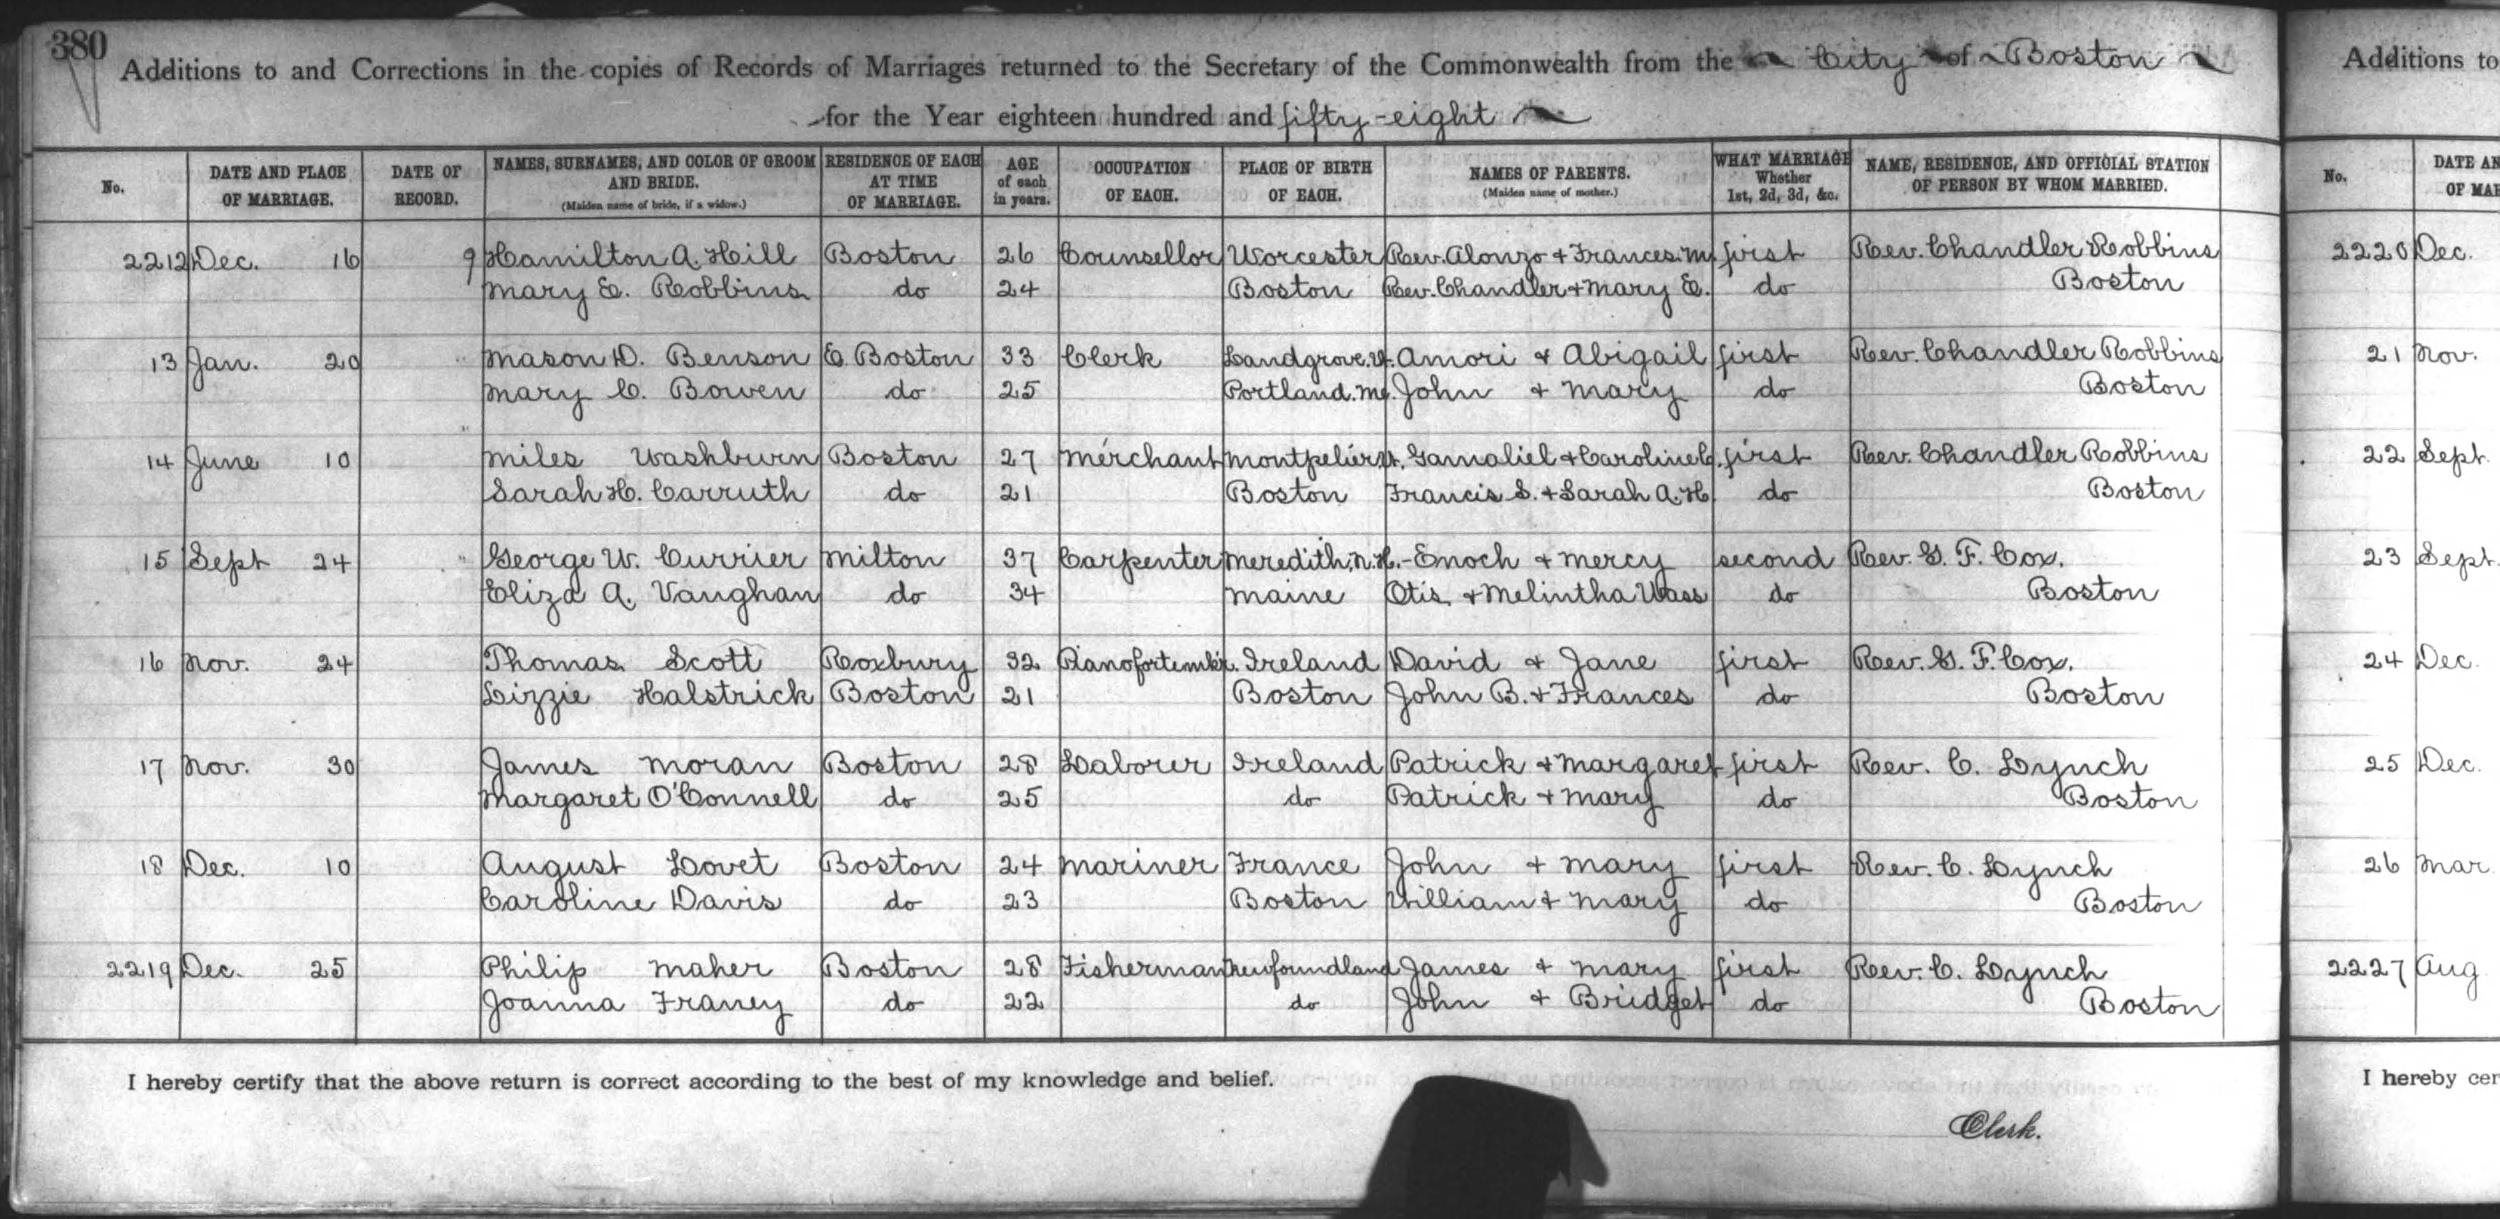 380
Additions to and Corrections in the copies of Records of Marriages returned to the Secretary of the Commonwealth from the City of Boston
for the Year eighteen hundred and fifty-eight
No. DATE AND PLACE OF MARRIAGE. DATE OF RECORD. NAMES, SURNAMES, AND COLOR OF GROOM AND BRIDE. (Maiden name of bride, if a widow.) RESIDENCE OF EACH AT TIME OF MARRIAGE. AGE of each in years. OCCUPATION OF EACH. PLACE OF BIRTH OF EACH. NAMES OF PARENTS. (Maiden name of mother.) WHAT MARRIAGE Whether 1st, 2d, 3d, &c. NAME, RESIDENCE, AND OFFICIAL STATION OF PERSON BY WHOM MARRIED.
2212 Dec. 16 9 Hamilton A. Hill Boston 26 Counsellor Worcester Rev. Alonzo + Frances M. first Rev. Chandler Robbins
Mary E. Robbins do 24 Boston Rev. Chandler + Mary E. do Boston
13 Jan. 20 " Mason D. Benson E. Boston 33 Clerk Landgrove. Vt. Amori + Abigail first Rev. Chandler Robbins
Mary C. Bowen do 25 Portland. Me. John + Mary do Boston
14 June 10 " Miles Washburn Boston 27 Merchant Montpelier Vt. Gamaliel + Caroline C. first Rev. Chandler Robbins
Sarah H. Carruth do 21 Boston Francis S. + Sarah A. H. do Boston
15 Sept 24 " George W. Currier Milton 37 Carpenter Meredith, N.H. - Enoch + Mercy second Rev. G. F. Cox.
Eliza A. Vaughan do 34 Maine Otis + Melintha Wass do Boston
16 Nov. 24 Thomas Scott Roxbury 32 Pianofortemkr. Ireland David + Jane first Rev. G. F. Cox.
Lizzie Halstrick Boston 21 Boston John B. + Frances do Boston
17 Nov. 30 James Moran Boston 28 Laborer Ireland Patrick + Margaret first Rev. C. Lynch
Margaret O'Connell do 25 do Patrick + Mary do Boston
18 Dec. 10 August Lovet Boston 24 Mariner France John + Mary first Rev. C. Lynch
Caroline Davis do 23 Boston William + Mary do Boston
2219 Dec. 25 Philip Maher Boston 28 Fisherman Newfoundland James + Mary first Rev. C. Lynch
Joanna Franey do 22 do John + Bridget do Boston
I hereby certify that the above return is correct according to the best of my knowledge and belief.
Clerk.
Additions to
No. DATE AN
OF MAR
2220 Dec.
21 Nov.
22 Sept.
23 Sept.
24 Dec.
25 Dec.
26 Mar
2227 Aug
I hereby cer